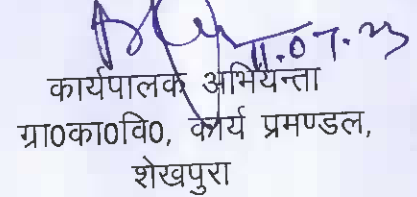 11.07.23
कार्यपालक अभियन्ता
ग्रा0का0वि0, कार्य प्रमण्डल,
शेखपुरा